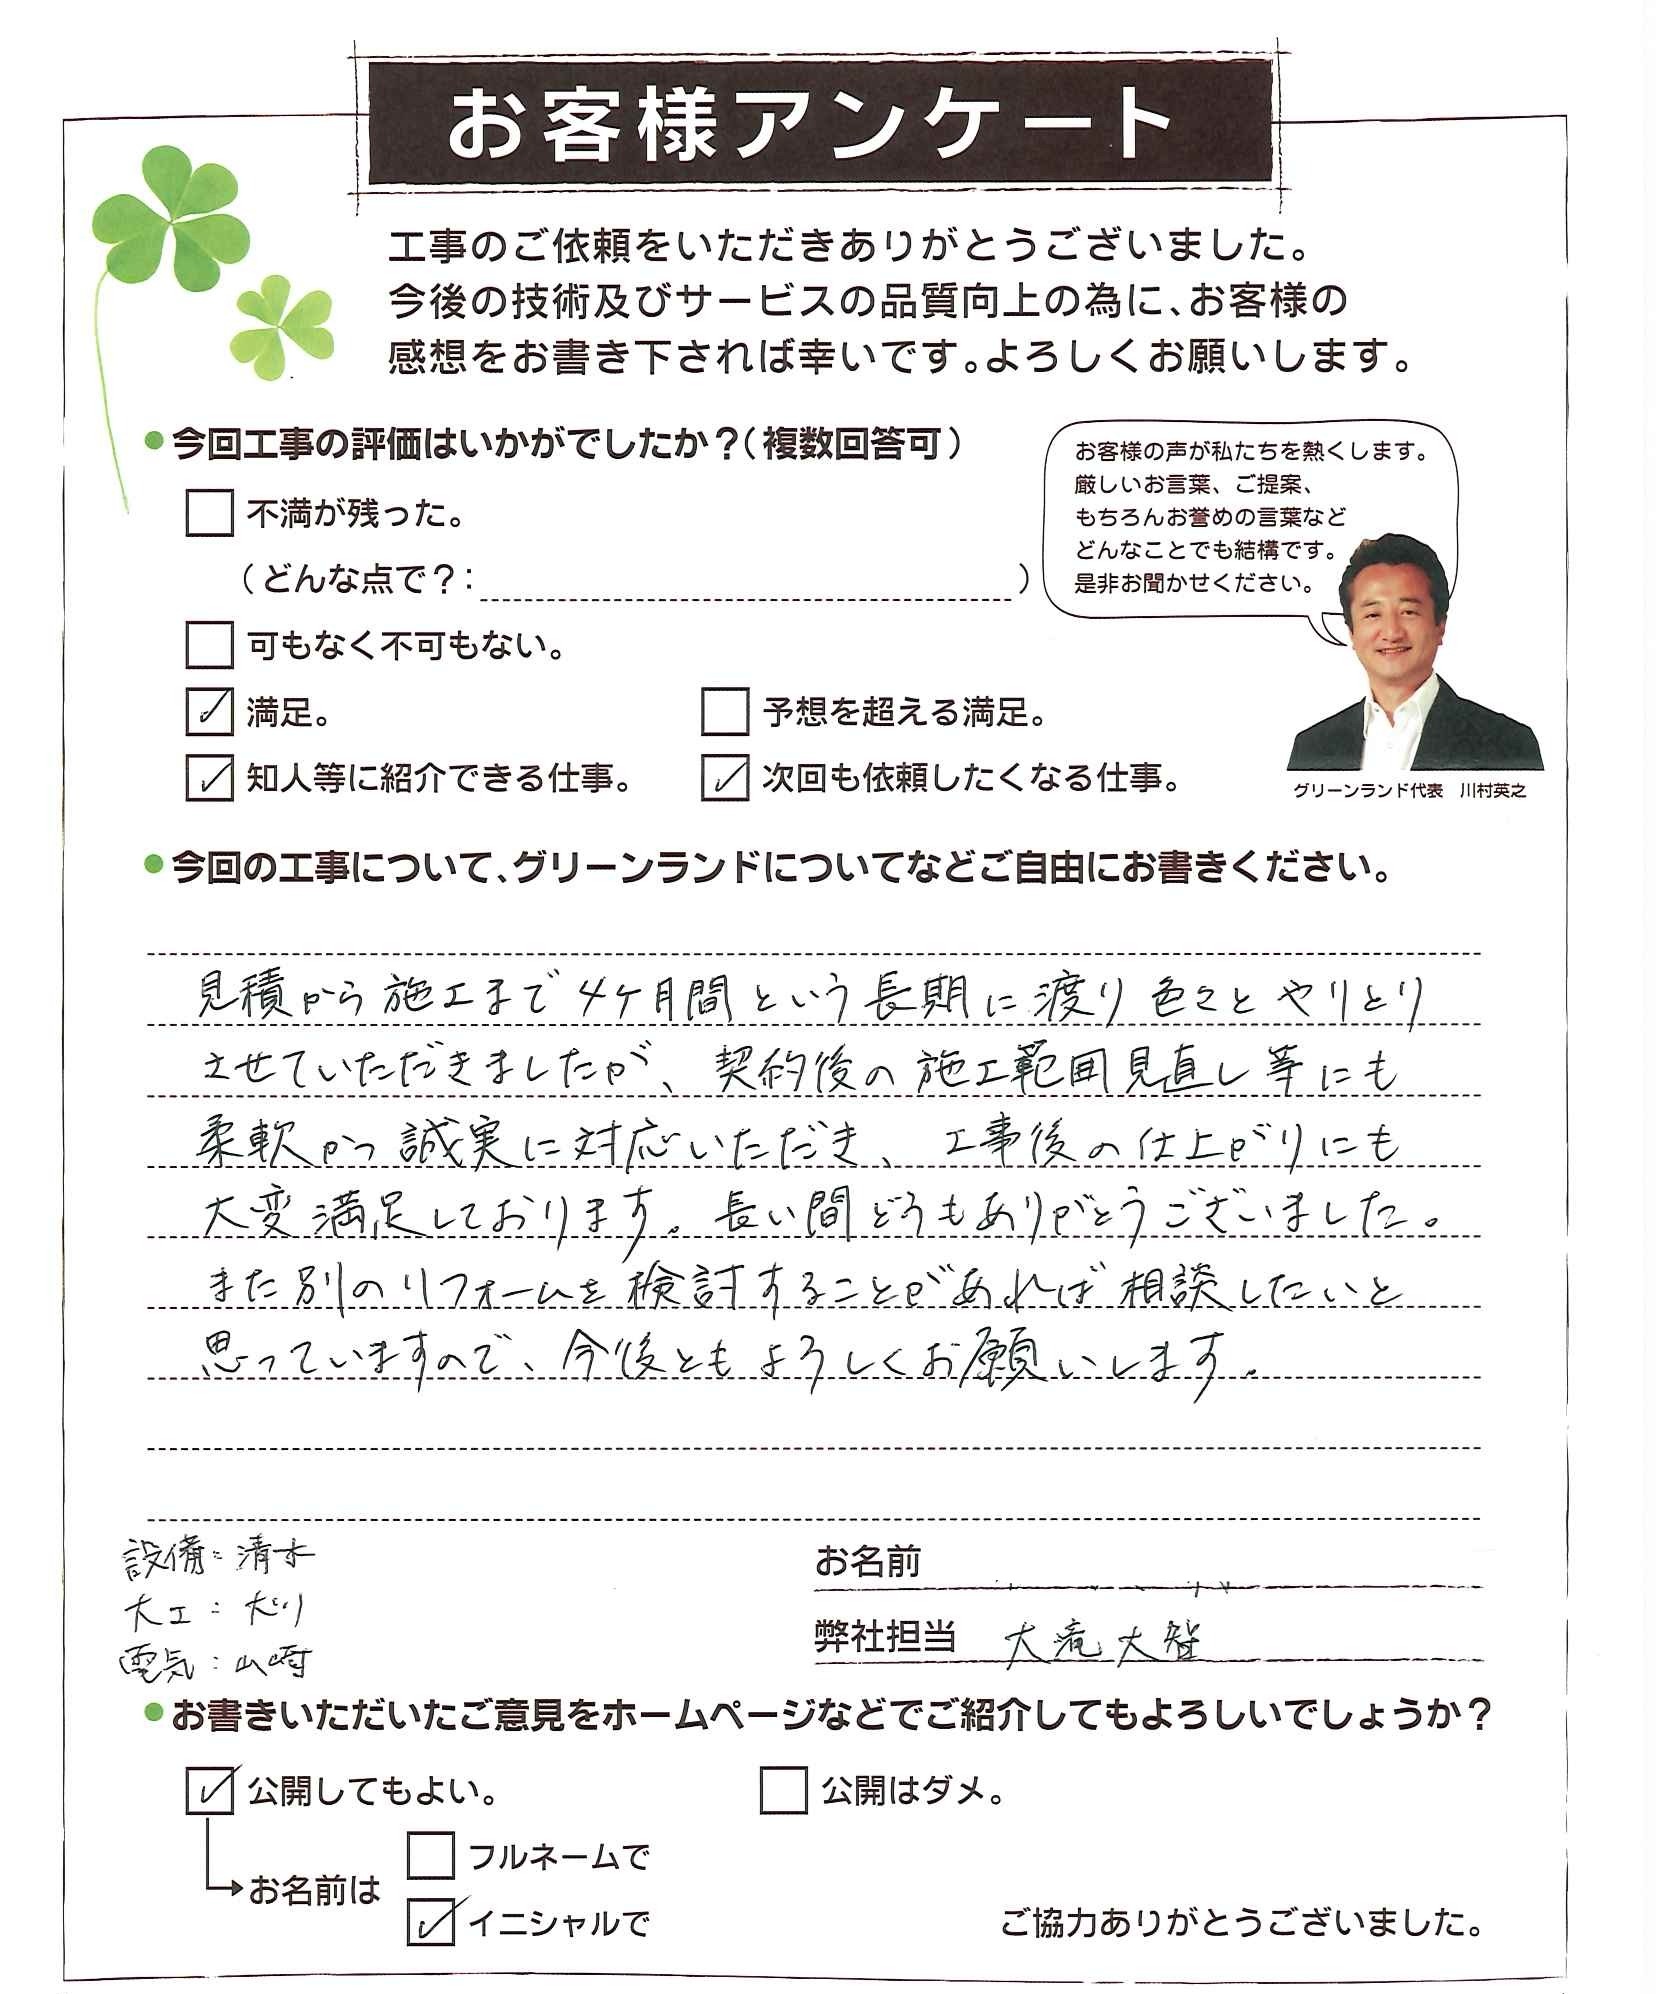 お客様アンケート
工事のご依頼をいただきありがとうございました。
今後の技術及びサービスの品質向上の為に、お客様の
感想をお書き下されば幸いです。よろしくお願いします。
●今回工事の評価はいかがでしたか？(複数回答可)
不満が残った。
(どんな点で？: )
可もなく不可もない。
満足。
予想を超える満足。
知人等に紹介できる仕事。
次回も依頼したくなる仕事。
お客様の声が私たちを熱くします。
厳しいお言葉、ご提案、
もちろんお誉めの言葉など
どんなことでも結構です。
是非お聞かせください。
グリーンランド代表 川村英之
●今回の工事について、グリーンランドについてなどご自由にお書きください。
見積から施工まで4ケ月間という長期に渡り色々とやりとり
させていただきましたが、契約後の施工範囲見直し等にも
柔軟かつ誠実に対応いただき、工事後の仕上がりにも
大変満足しております。長い間どうもありがとうございました。
また別のリフォームを検討することがあれば相談したいと
思っていますので、今後ともよろしくお願いします。
設備：清水
大工：
電気：山崎
お名前
弊社担当 大滝大智
●お書きいただいたご意見をホームページなどでご紹介してもよろしいでしょうか？
公開してもよい。
公開はダメ。
お名前は
フルネームで
イニシャルで
ご協力ありがとうございました。